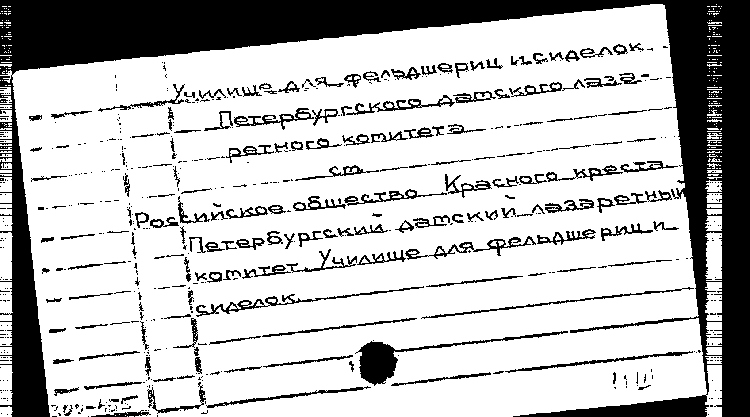 Училище для фельдшериц и сиделок
Петербургского дамского лаза-
ретного комитета
см.
Российское общество Красного креста.
Петербургский дамский лазаретный
комитет. Училище для фельдшериц и
сиделок.